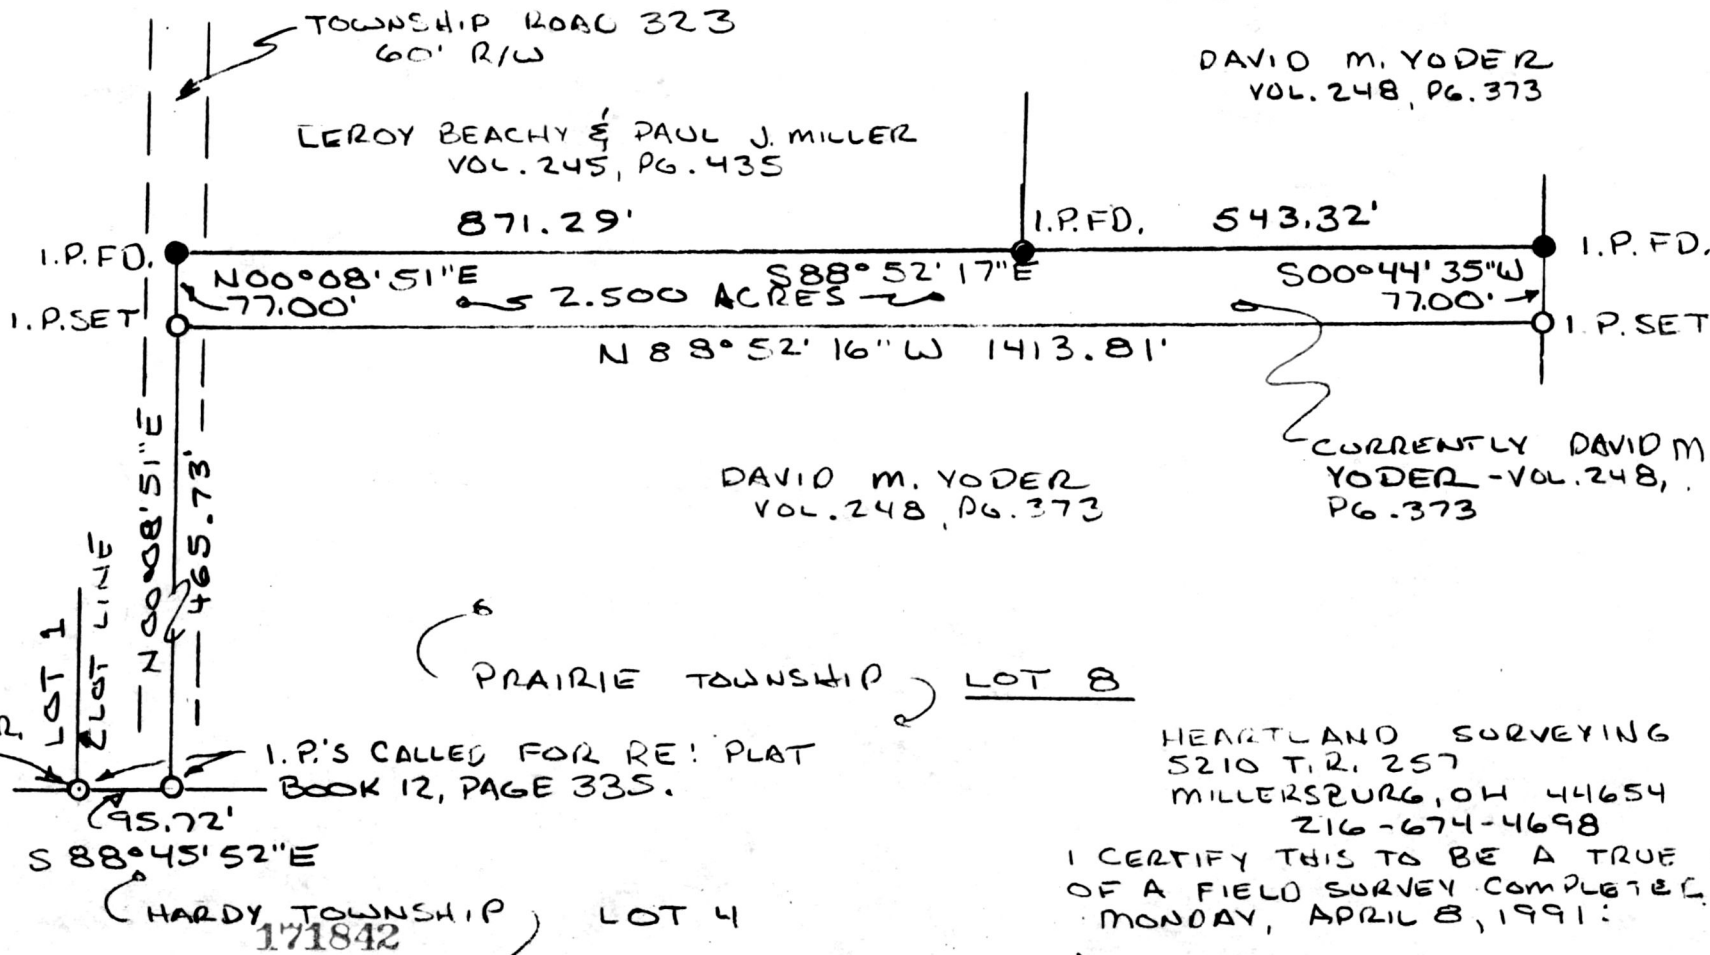 TOWNSHIP ROAD 323
60' R/W
DAVID M. YODER
VOL. 248, PG. 373
LEROY BEACHY & PAUL J. MILLER
VOL. 245, PG. 435
871.29'
I.P.FD.
543.32'
I.P. FD.
I.P. FD.
N00°08'51"E
77.00'
S88°52'17"E
2.500 ACRES
S00°44'35"W
77.00'
I.P.SET
I.P. SET
N 88°52'16" W 1413.81'
CURRENTLY DAVID M
YODER - VOL. 248,
PG. 373
DAVID M. YODER
VOL. 248, PG. 373
N 00°08'51"E
465.73'
LOT 1
LOT LINE
PRAIRIE TOWNSHIP
LOT 8
R.
I.P.'S CALLED FOR RE: PLAT
BOOK 12, PAGE 335.
95.72'
S 88°45'52"E
HEARTLAND SURVEYING
5210 T.R. 257
MILLERSBURG, OH 44654
216-674-4698
I CERTIFY THIS TO BE A TRUE
OF A FIELD SURVEY COMPLETED
MONDAY, APRIL 8, 1991:
HARDY TOWNSHIP
LOT 4
171842